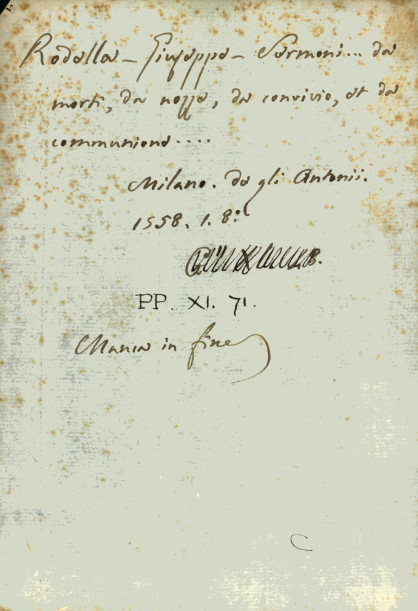 Rodella - Giuseppe - Sermoni... da
morti, da nozze, da convivio, et da
communione....
Milano. da gli Antonii.
1558. 1. 8:
PP. XI. 71.
Manca in fine
C